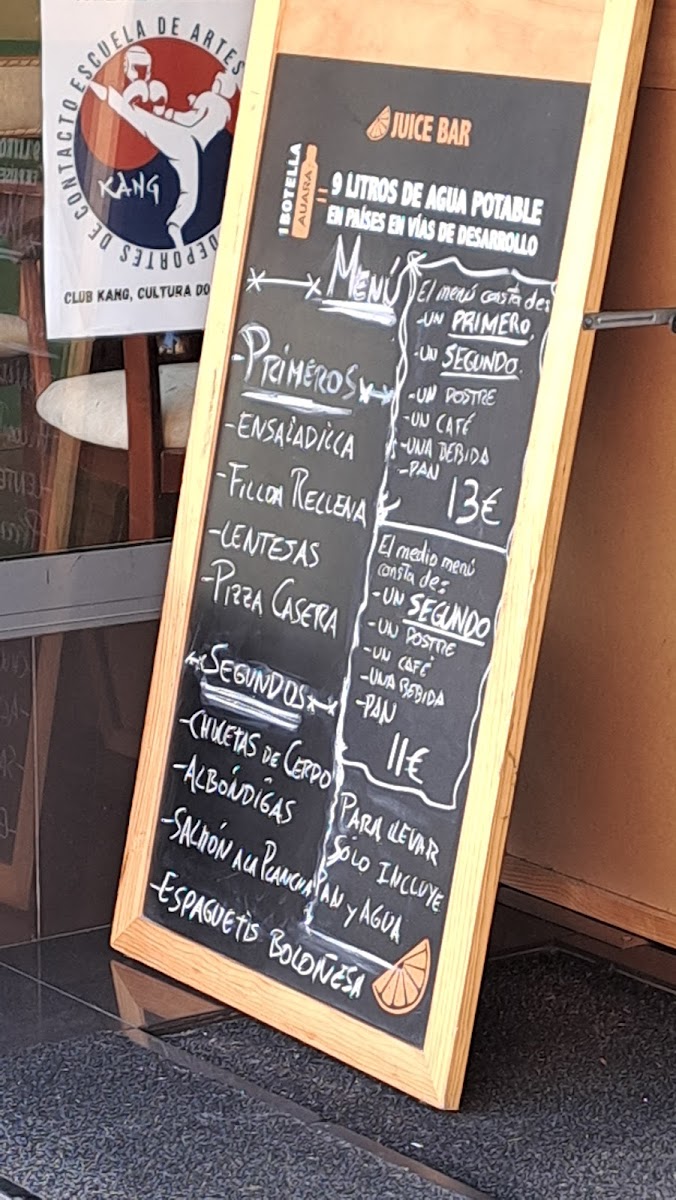 ESCUELA DE ARTES
DEPORTES DE CONTACTO
KANG
CLUB KANG, CULTURA DO
JUICE BAR
1 BOTELLA
AUARA
= 9 LITROS DE AGUA POTABLE
EN PAÍSES EN VÍAS DE DESARROLLO
MENÚ
-PRIMEROS
-ENSALADILLA
-FILLOA RELLENA
-LENTEJAS
-PIZZA CASERA
SEGUNDOS
-CHULETAS DE CERDO
-ALBÓNDIGAS
-SALMÓN A LA PLANCHA
-ESPAGUETIS BOLOÑESA
El menú consta de:
-UN PRIMERO,
-UN SEGUNDO.
-UN POSTRE
-UN CAFÉ
-UNA BEBIDA
-PAN
13€
El medio menú
consta de:
-UN SEGUNDO
-UN POSTRE
-UN CAFÉ
-UNA BEBIDA
-PAN
11€
PARA LLEVAR
SÓLO INCLUYE
PAN Y AGUA